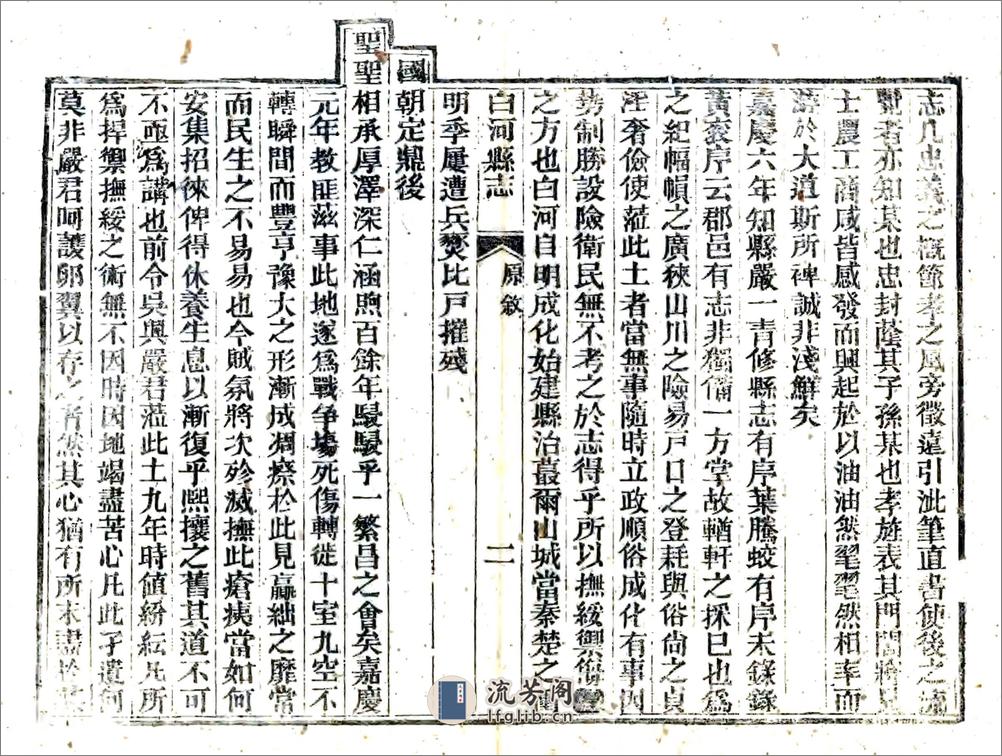 志凡忠義之概節孝之風旁徵遠引泚筆直書使後之
覽者亦知某也忠封蔭其子孫某也孝旌表其門閭將見
士農工商咸皆感發而興起於以油油然亹亹然相率而
游於大道斯所裨誠非淺鮮矣
嘉慶六年知縣嚴一青修縣志有序葉騰蛟有序未錄錄
黃袞序云郡邑有志非獨備一方掌故輶軒之採已也為
之紀幅幀之廣狹山川之險易戶口之登耗與俗尚之貞
淫奢儉使蒞此土者當無事隨時立政順俗成化有事因
勢制勝設險衛民無不考之於志得乎所以撫綏禦侮
之方也白河自明成化始建縣治蕞爾山城當秦楚之
白河縣志
原敘
二
明季屢遭兵燹比戶摧殘
國朝定鼎後
聖聖相承厚澤深仁涵煦百餘年駸駸乎一繁昌之會矣嘉慶
元年教匪滋事此地遂為戰爭塲死傷轉徙十室九空不
轉瞬間而豐亨豫大之形漸成凋瘵於此見贏絀之靡常
而民生之不易易也今賊氛將次殄滅撫此瘡痍當如何
安集招徠俾得休養生息以漸復乎熙攘之舊其道不可
不亟為講也前令吳興嚴君蒞此土九年時值紛紜凡所
為捍禦撫綏之術無不因時因地竭盡苦心凡此孑遺何
莫非嚴君呵護卵翼以存之者然其心猶有所未盡於
流芳阁
lfglib.cn